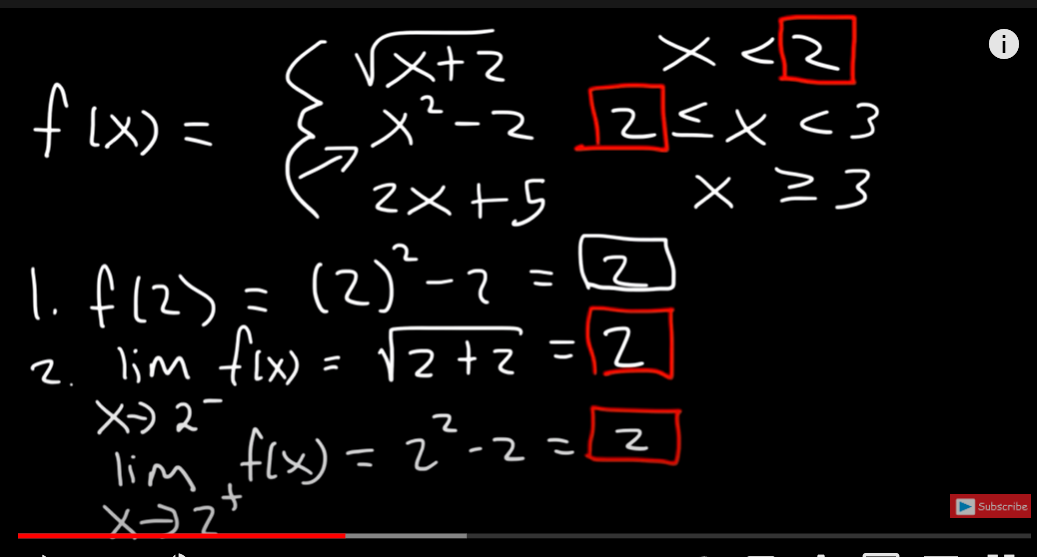 f(x) = { √(x+2)  x < 2
x² - 2  2 ≤ x < 3
2x + 5  x ≥ 3
1. f(2) = (2)² - 2 = 2
2. lim f(x) = √(2 + 2) = 2
x → 2⁻
lim f(x) = 2² - 2 = 2
x → 2⁺
Subscribe